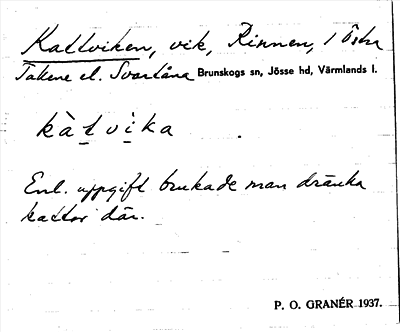 Kattviken, vik, Rinnen, i Östra
Takene el. Svartåna Brunskogs sn, Jösse hd, Värmlands l.
kàtvika
Enl. uppgift brukade man dränka
kattor där.
P. O. GRANÉR 1937.